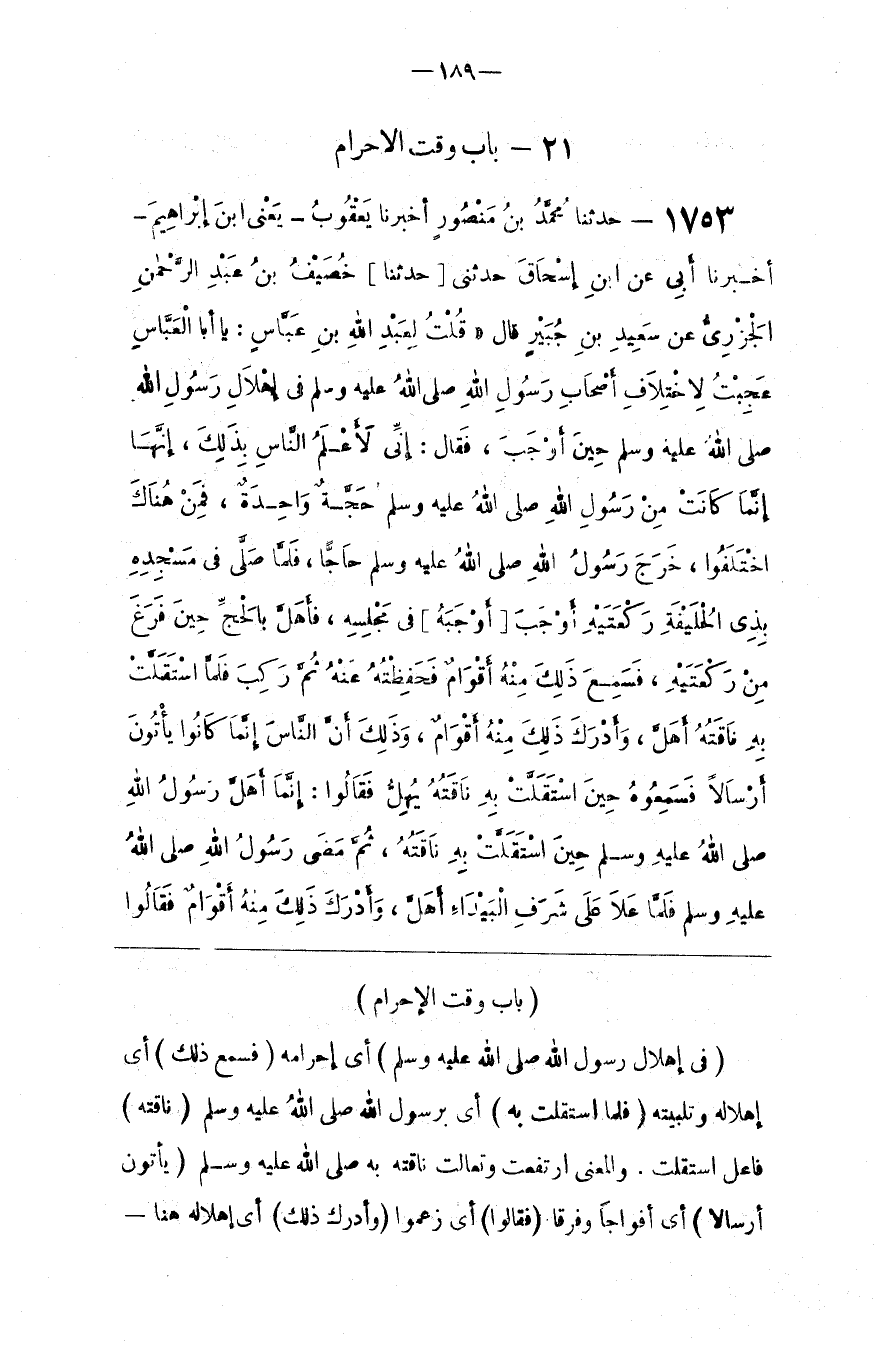 — ١٨٩ —
٢١ — باب وقت الاحرام
١٧٥٣ — حدثنا مُحَمَّدُ بنُ مَنْصُورٍ أخبرنا يَعْقُوبُ - يَعْنى ابنَ إبْرَاهِيمَ -
أخبرنا أَبِى عن ابنِ إِسْحَاقَ حدثنى [ حدثنا ] خُصَيْفُ بنُ عَبْدِ الرَّحْمٰنِ
الْجَزْرِىُّ عن سَعِيدِ بنِ جُبَيْرٍ قال « قُلْتُ لِعَبْدِ اللهِ بنِ عَبَّاسٍ : يا أبا الْعَبَّاسِ
عَجِبْتُ لِاخْتِلَافِ أَصْحَابِ رَسُولِ اللهِ صلى اللهُ عليه وسلم فى إهْلَالِ رَسُولِ اللهِ
صلى اللهُ عليه وسلم حِينَ أَوْجَبَ ، فَقال : إِنِّى لَأَعْلَمُ النَّاسِ بِذٰلِكَ ، إِنَّهَا
إِنَّمَا كَانَتْ مِنْ رَسُولِ اللهِ صلى اللهُ عليه وسلم حَجَّةٌ وَاحِدَةٌ ، فَمِنْ هُنَاكَ
اخْتَلَفُوا ، خَرَجَ رَسُولُ اللهِ صلى اللهُ عليه وسلم حَاجًّا ، فَلَمَّا صَلَّى فى مَسْجِدِهِ
بِذِى الْحُلَيْفَةِ رَكْعَتَيْهِ أَوْجَبَ [ أَوْجَبَهُ ] فى مَجْلِسِهِ ، فَأَهَلَّ بالْحَجِّ حِينَ فَرَغَ
مِنْ رَكْعَتَيْهِ ، فَسَمِعَ ذَلِكَ مِنْهُ أَقْوَامٌ فَحَفِظْتُهُ عَنْهُ ثُمَّ رَكِبَ فَلَمَّا اسْتَقَلَّتْ
بِهِ نَاقَتُهُ أَهَلَّ ، وَأَدْرَكَ ذَلِكَ مِنْهُ أَقْوَامٌ ، وَذَلِكَ أَنَّ النَّاسَ إِنَّمَا كَانُوا يأْتُونَ
أَرْسَالاً فَسَمِعُوهُ حِينَ اسْتَقَلَّتْ بِهِ نَاقَتُهُ يُهِلُّ فَقَالُوا : إِنَّمَا أَهَلَّ رَسُولُ اللهِ
صلى اللهُ عليهِ وسلم حِينَ اسْتَقَلَّتْ بِهِ نَاقَتُهُ ، ثُمَّ مَضَى رَسُولُ اللهِ صلى اللهُ
عليهِ وسلم فَلَمَّا عَلاَ عَلَى شَرَفِ الْبَيْدَاءِ أَهَلَّ ، وَأَدْرَكَ ذَلِكَ مِنْهُ أَقْوَامٌ فَقَالُوا
( باب وقت الإحرام )
( فى إهلال رسول الله صلى الله عليه وسلم ) أى إحرامه ( فسمع ذلك ) أى
إهلاله وتلبيته ( فلما استقلت به ) أى برسول الله صلى اللهُ عليه وسلم ( ناقته )
فاعل استقلت . والمعنى ارتفعت وتعالت ناقته به صلى الله عليه وسلم ( يأتون
أرسالا ) أى أفواجاً وفرقا ( فقالوا ) أى زعموا ( وأدرك ذلك ) أى إهلاله هنا —